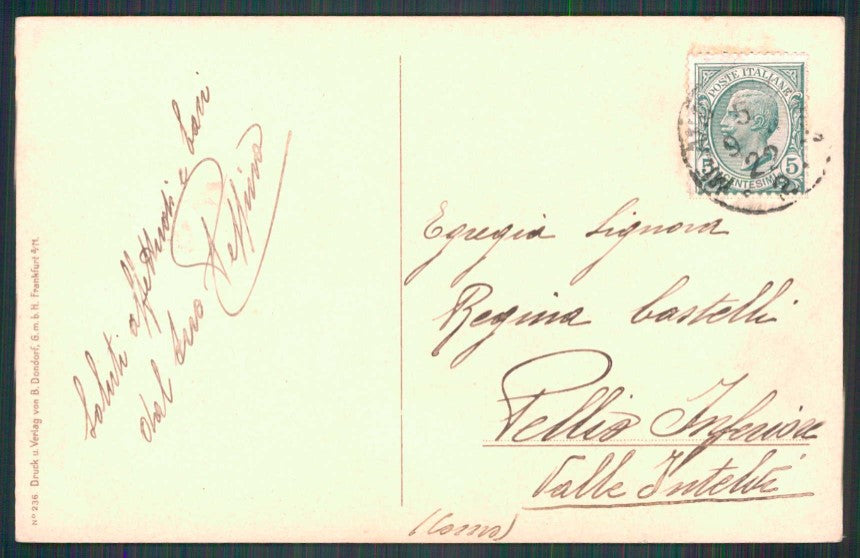 Saluti affettuosi e baci
dal suo Peppino
Egregia Signora
Regina Castelli
Pellio Inferiore
Valle Intelvi
(Como)
POSTE ITALIANE
5 5
CENTESIMI
Nº 236. Druck u. Verlag von B. Dondorf, G. m. b. H. Frankfurt a/M.